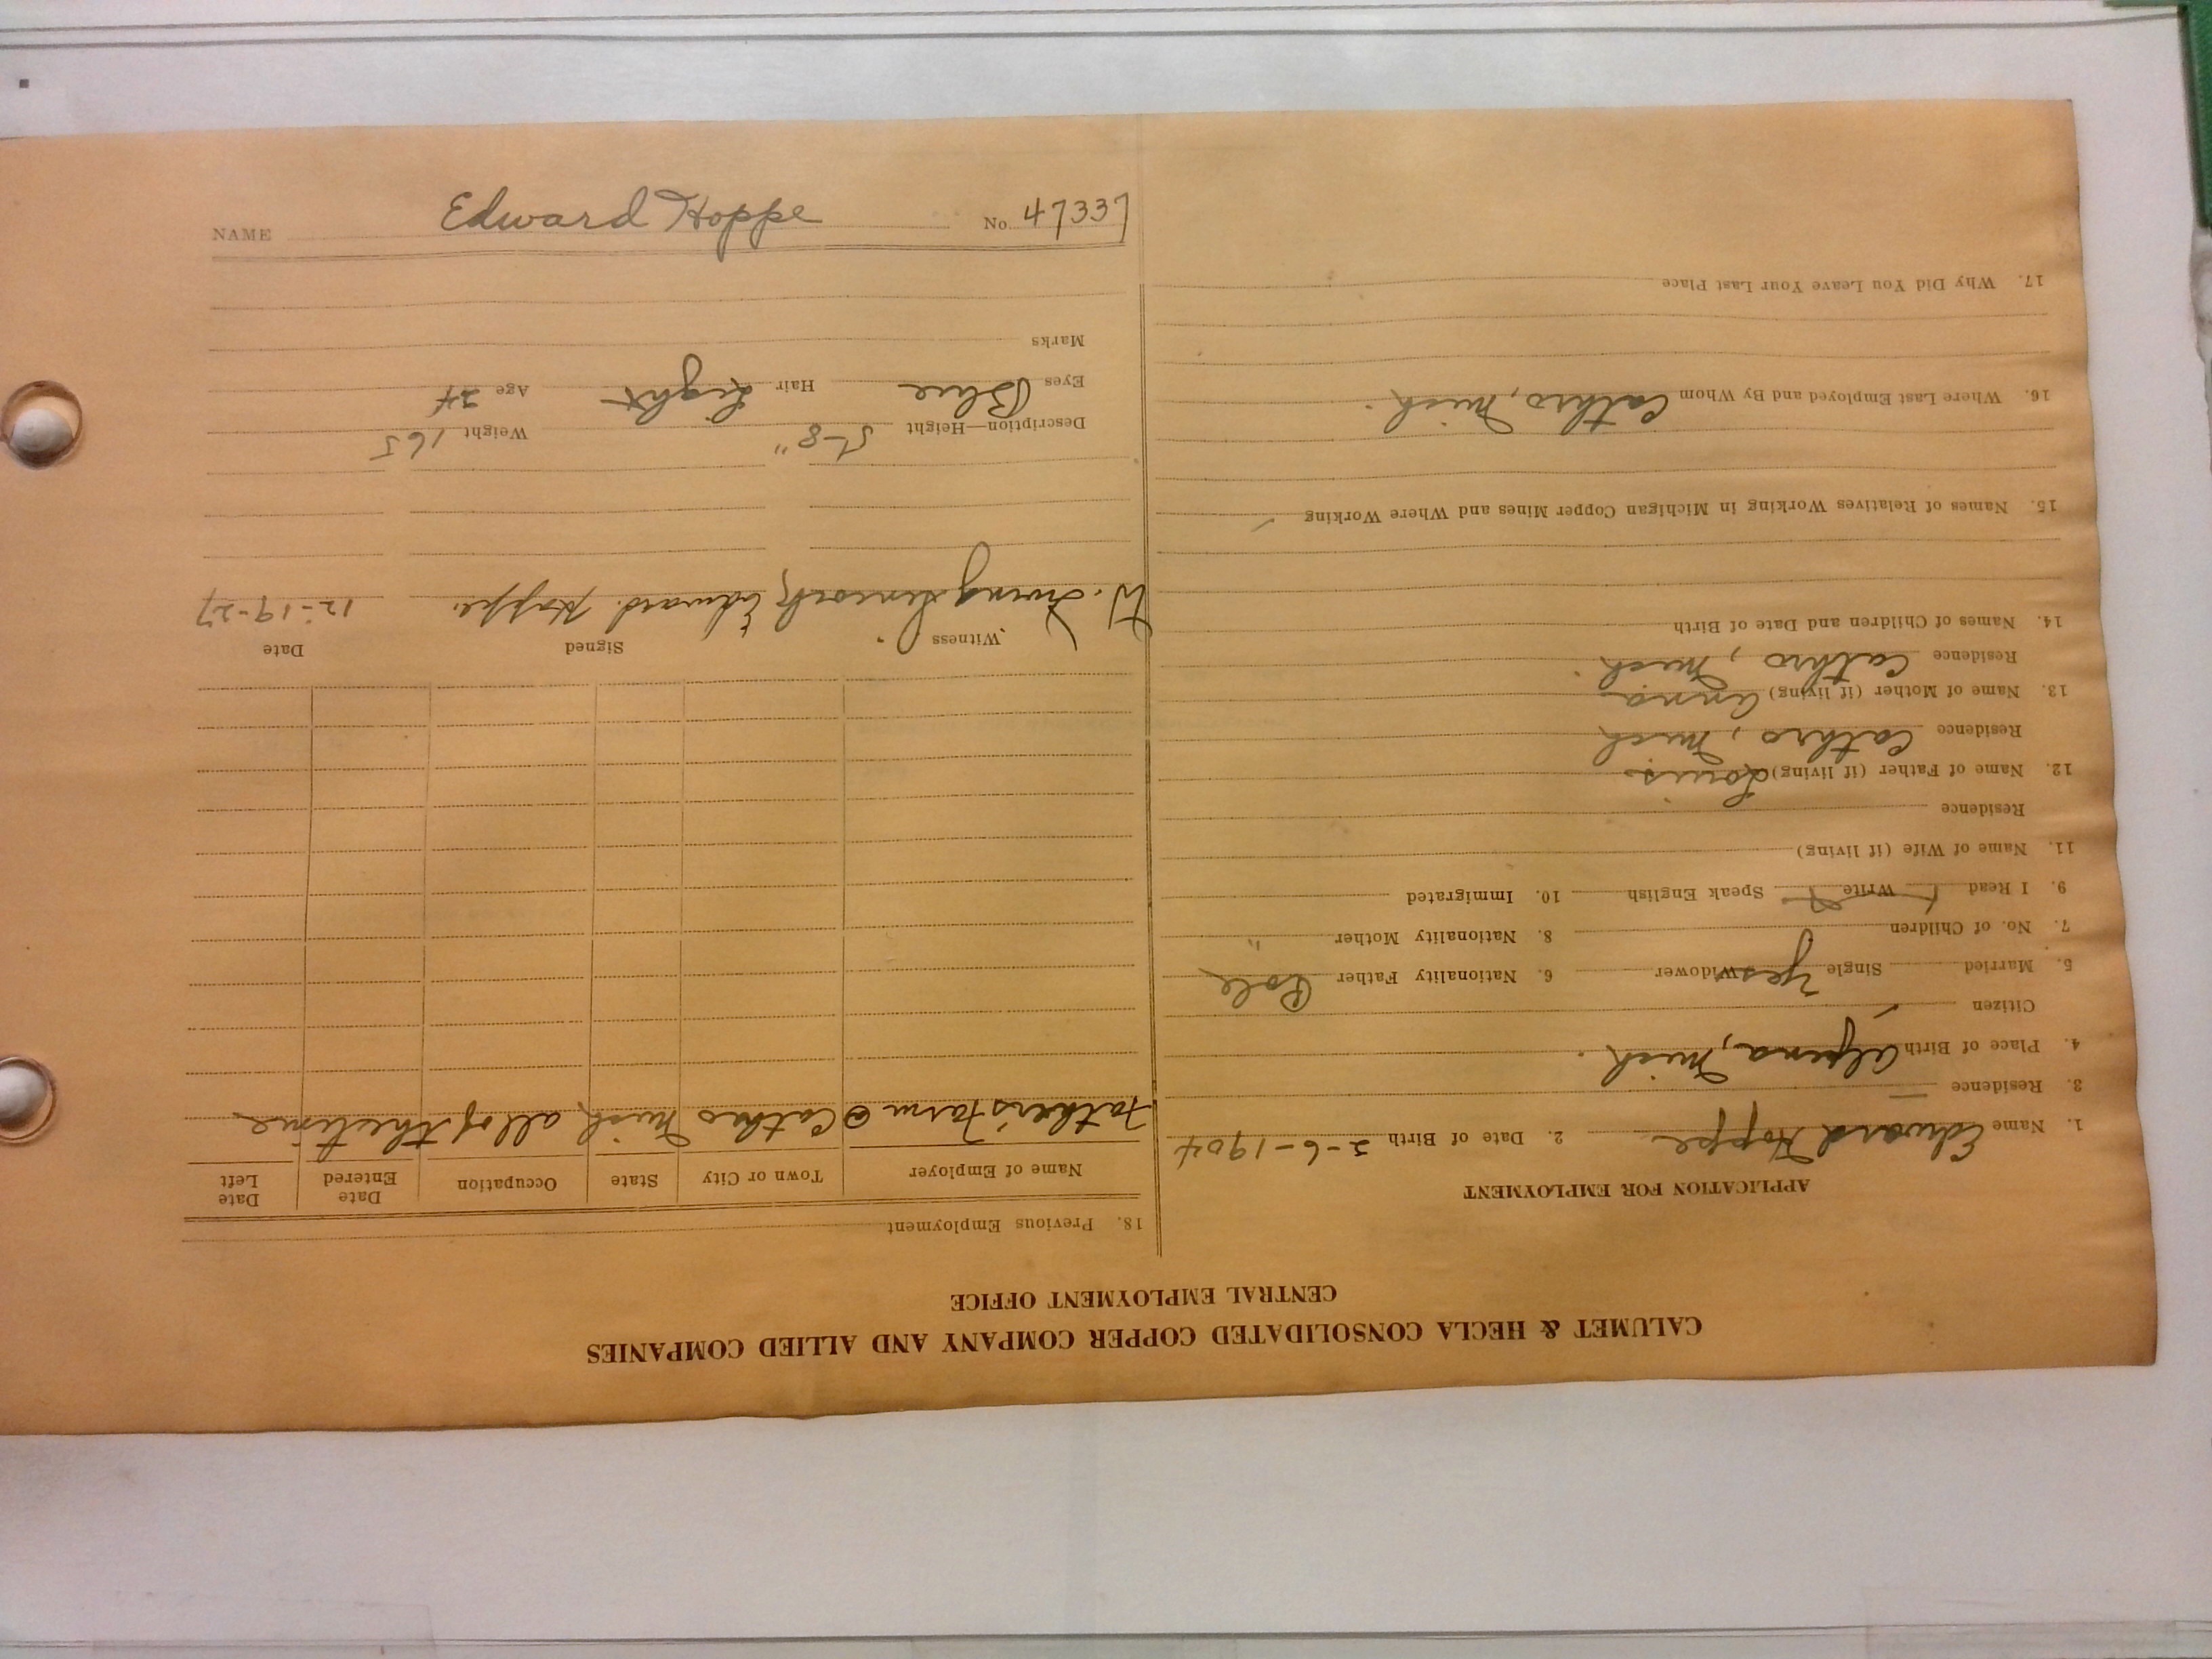 NAME Edward Hoppe No. 47337
CALUMET & HECLA CONSOLIDATED COPPER COMPANY AND ALLIED COMPANIES
CENTRAL EMPLOYMENT OFFICE
APPLICATION FOR EMPLOYMENT
1. Name Edward Hoppe 2. Date of Birth 2-6-1904
3. Residence —
4. Place of Birth Alpena, Mich.
Citizen ✓
5. Married Single Yes Widower 6. Nationality Father Pole
7. No. of Children 8. Nationality Mother "
9. I Read Write Speak English 10. Immigrated
11. Name of Wife (if living)
Residence
12. Name of Father (if living) Louis
Residence Cathro, Mich
13. Name of Mother (if living) Anna
Residence Cathro, Mich.
14. Names of Children and Date of Birth
15. Names of Relatives Working in Michigan Copper Mines and Where Working ✓
16. Where Last Employed and By Whom Cathro, Mich.
17. Why Did You Leave Your Last Place
18. Previous Employment
Name of Employer Town or City State Occupation Date Entered Date Left
Father's Farm @ Cathro Mich, all of the time
Witness Signed Date
W. Irving Edward Hoppe. 12-19-27
Description—Height 5-8" Weight 165
Eyes Blue Hair Light Age 24
Marks